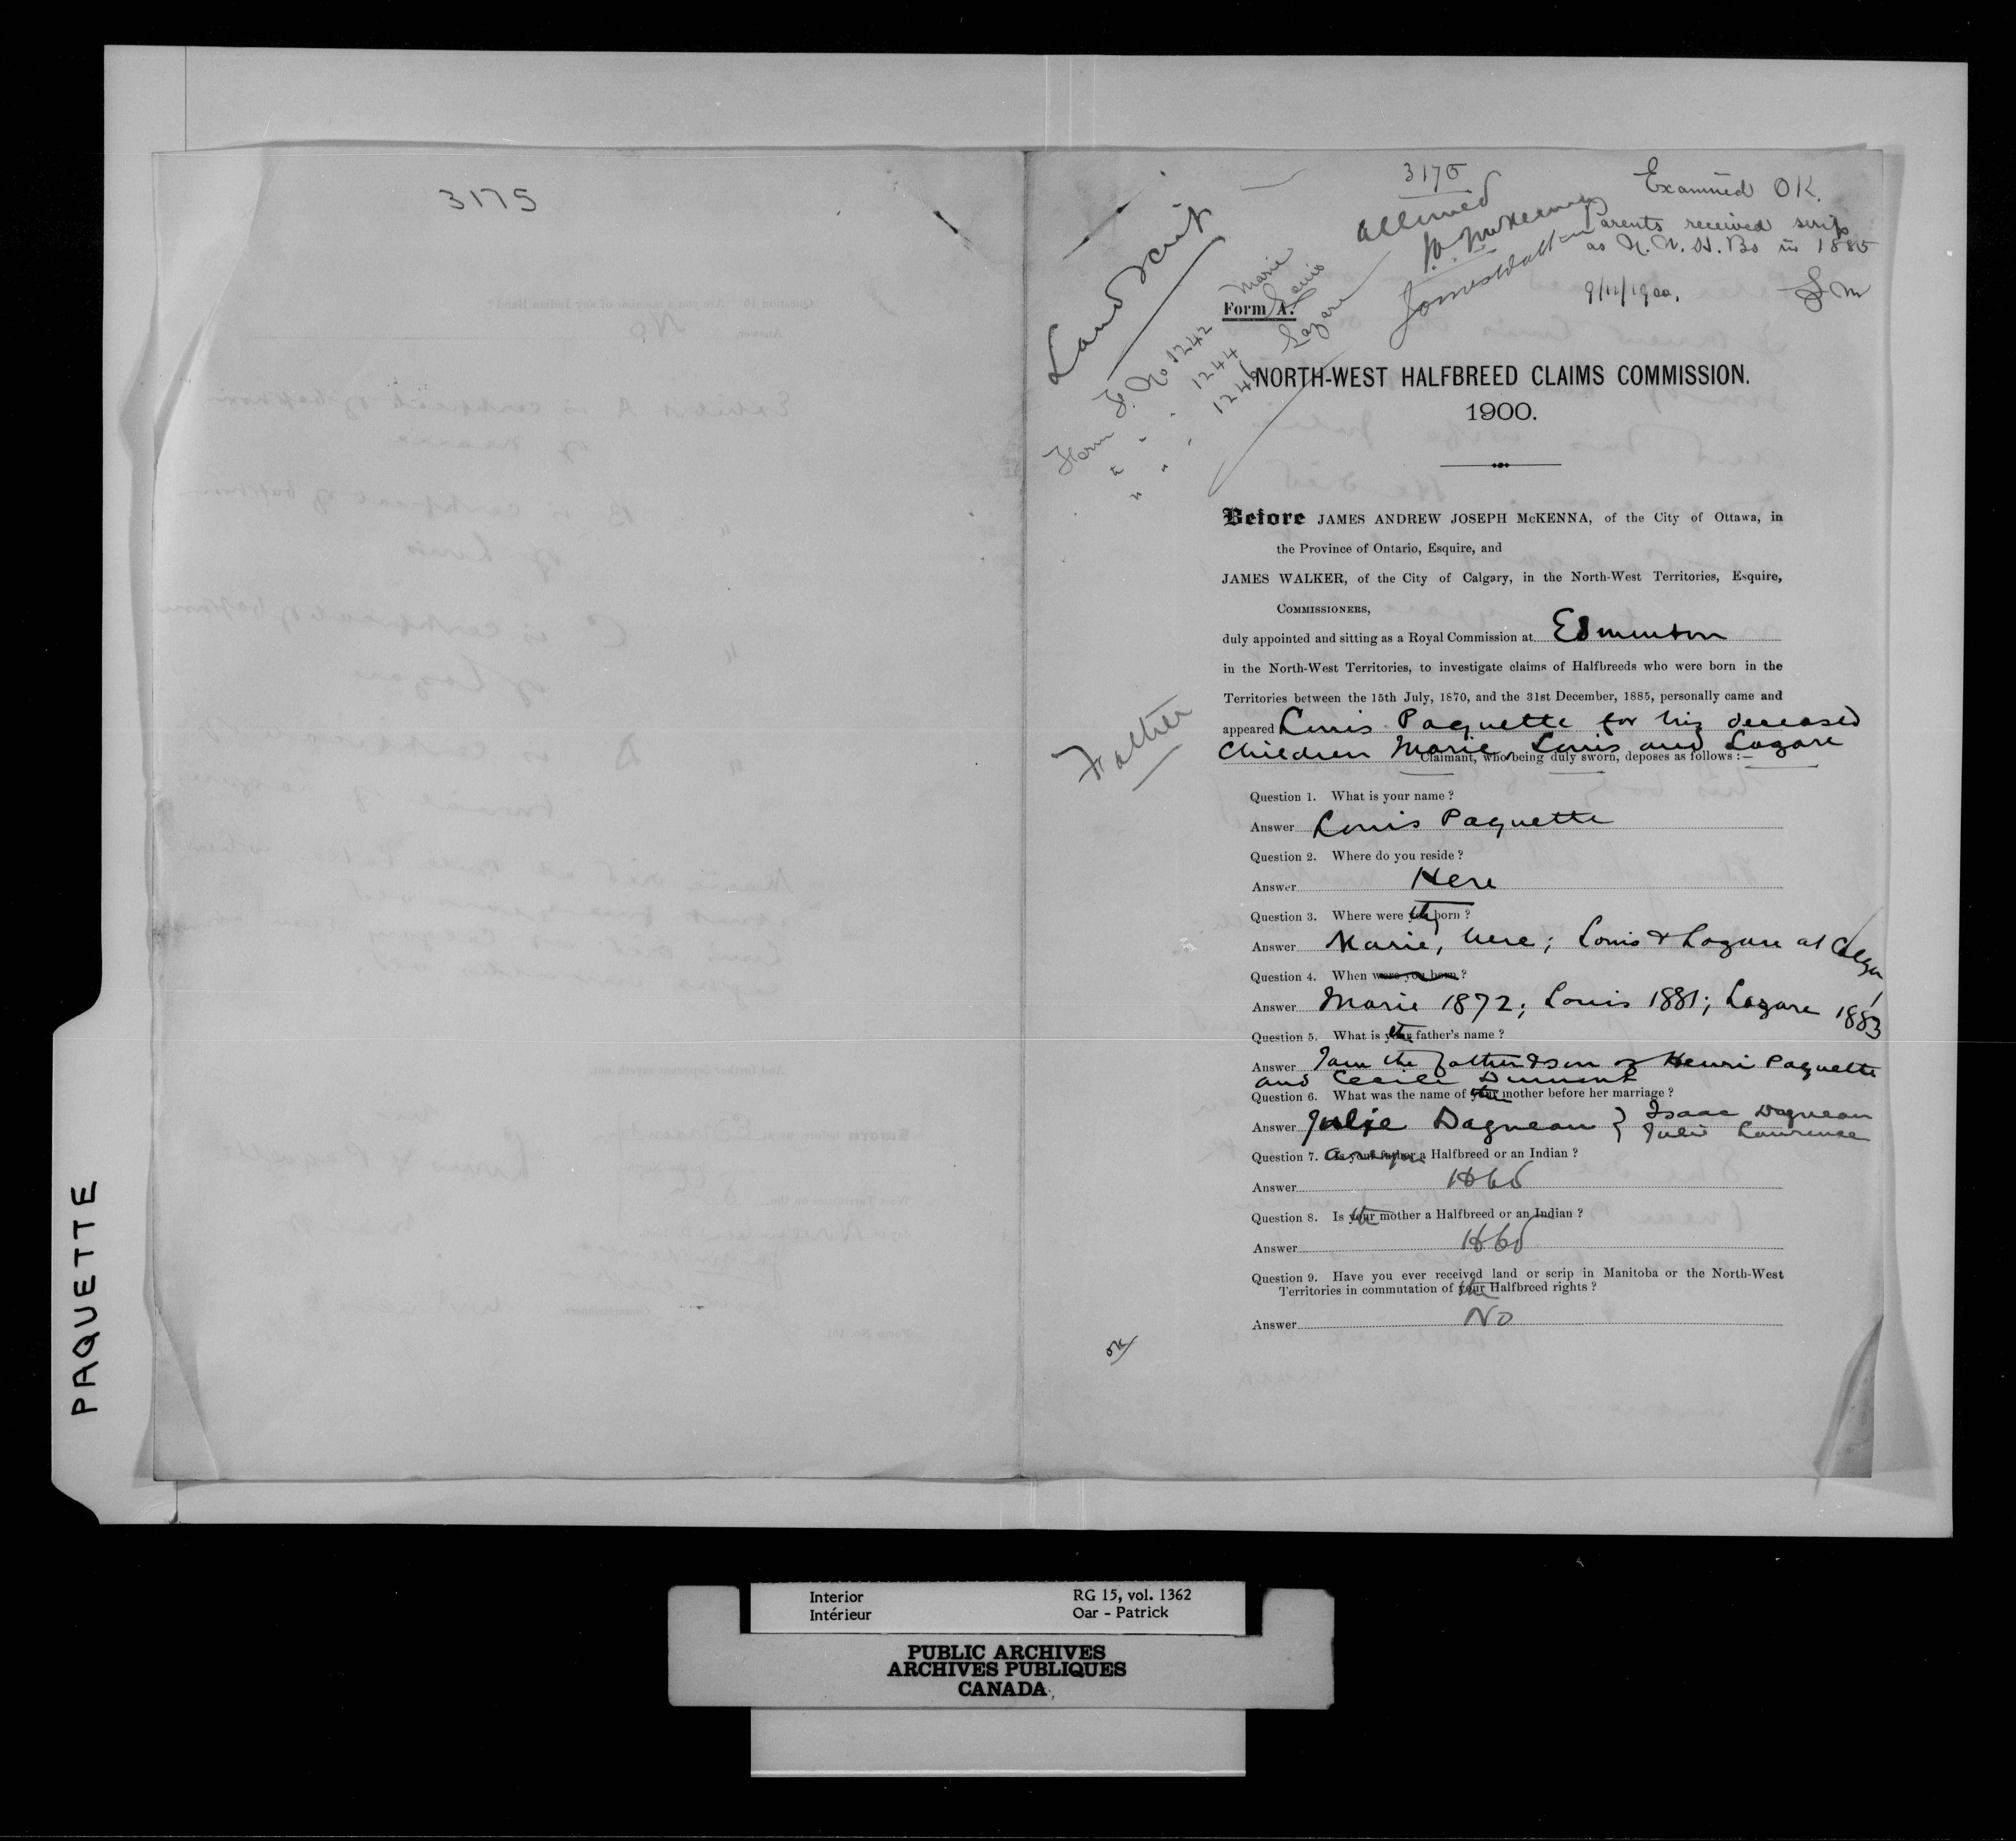 PAQUETTE
3175
3175
Examined OK.
Allowed
Parents received scrip
as N.W.H.Bs in 1885
9/11/1900.
Land Scrip
Form F. No 1242 Marie
" " 1244 Louis
" " 1246 Lazare
Form A.
NORTH-WEST HALFBREED CLAIMS COMMISSION.
1900.
Before JAMES ANDREW JOSEPH McKENNA, of the City of Ottawa, in
the Province of Ontario, Esquire, and
JAMES WALKER, of the City of Calgary, in the North-West Territories, Esquire,
COMMISSIONERS,
duly appointed and sitting as a Royal Commission at Edmonton
in the North-West Territories, to investigate claims of Halfbreeds who were born in the
Territories between the 15th July, 1870, and the 31st December, 1885, personally came and
appeared Louis Paquette for his deceased
children Marie, Louis and Lazare
Claimant, who being duly sworn, deposes as follows:—
Father
Question 1. What is your name?
Answer Louis Paquette
Question 2. Where do you reside?
Answer Here
Question 3. Where were they born?
Answer Marie, here; Louis & Lazare at Calgary
Question 4. When were you born?
Answer Marie 1872; Louis 1881; Lazare 1883
Question 5. What is the father's name?
Answer I am the father & son of Henri Paquette
and Cecile Dumont
Question 6. What was the name of the mother before her marriage?
Answer Julie Dagneau } Isaac Dagneau
Julie Laurence
Question 7. Are you a Halfbreed or an Indian?
Answer Hbd
Question 8. Is the mother a Halfbreed or an Indian?
Answer Hbd
Question 9. Have you ever received land or scrip in Manitoba or the North-West
Territories in commutation of the Halfbreed rights?
Answer No
OK
Interior
Intérieur
RG 15, vol. 1362
Oar - Patrick
PUBLIC ARCHIVES
ARCHIVES PUBLIQUES
CANADA